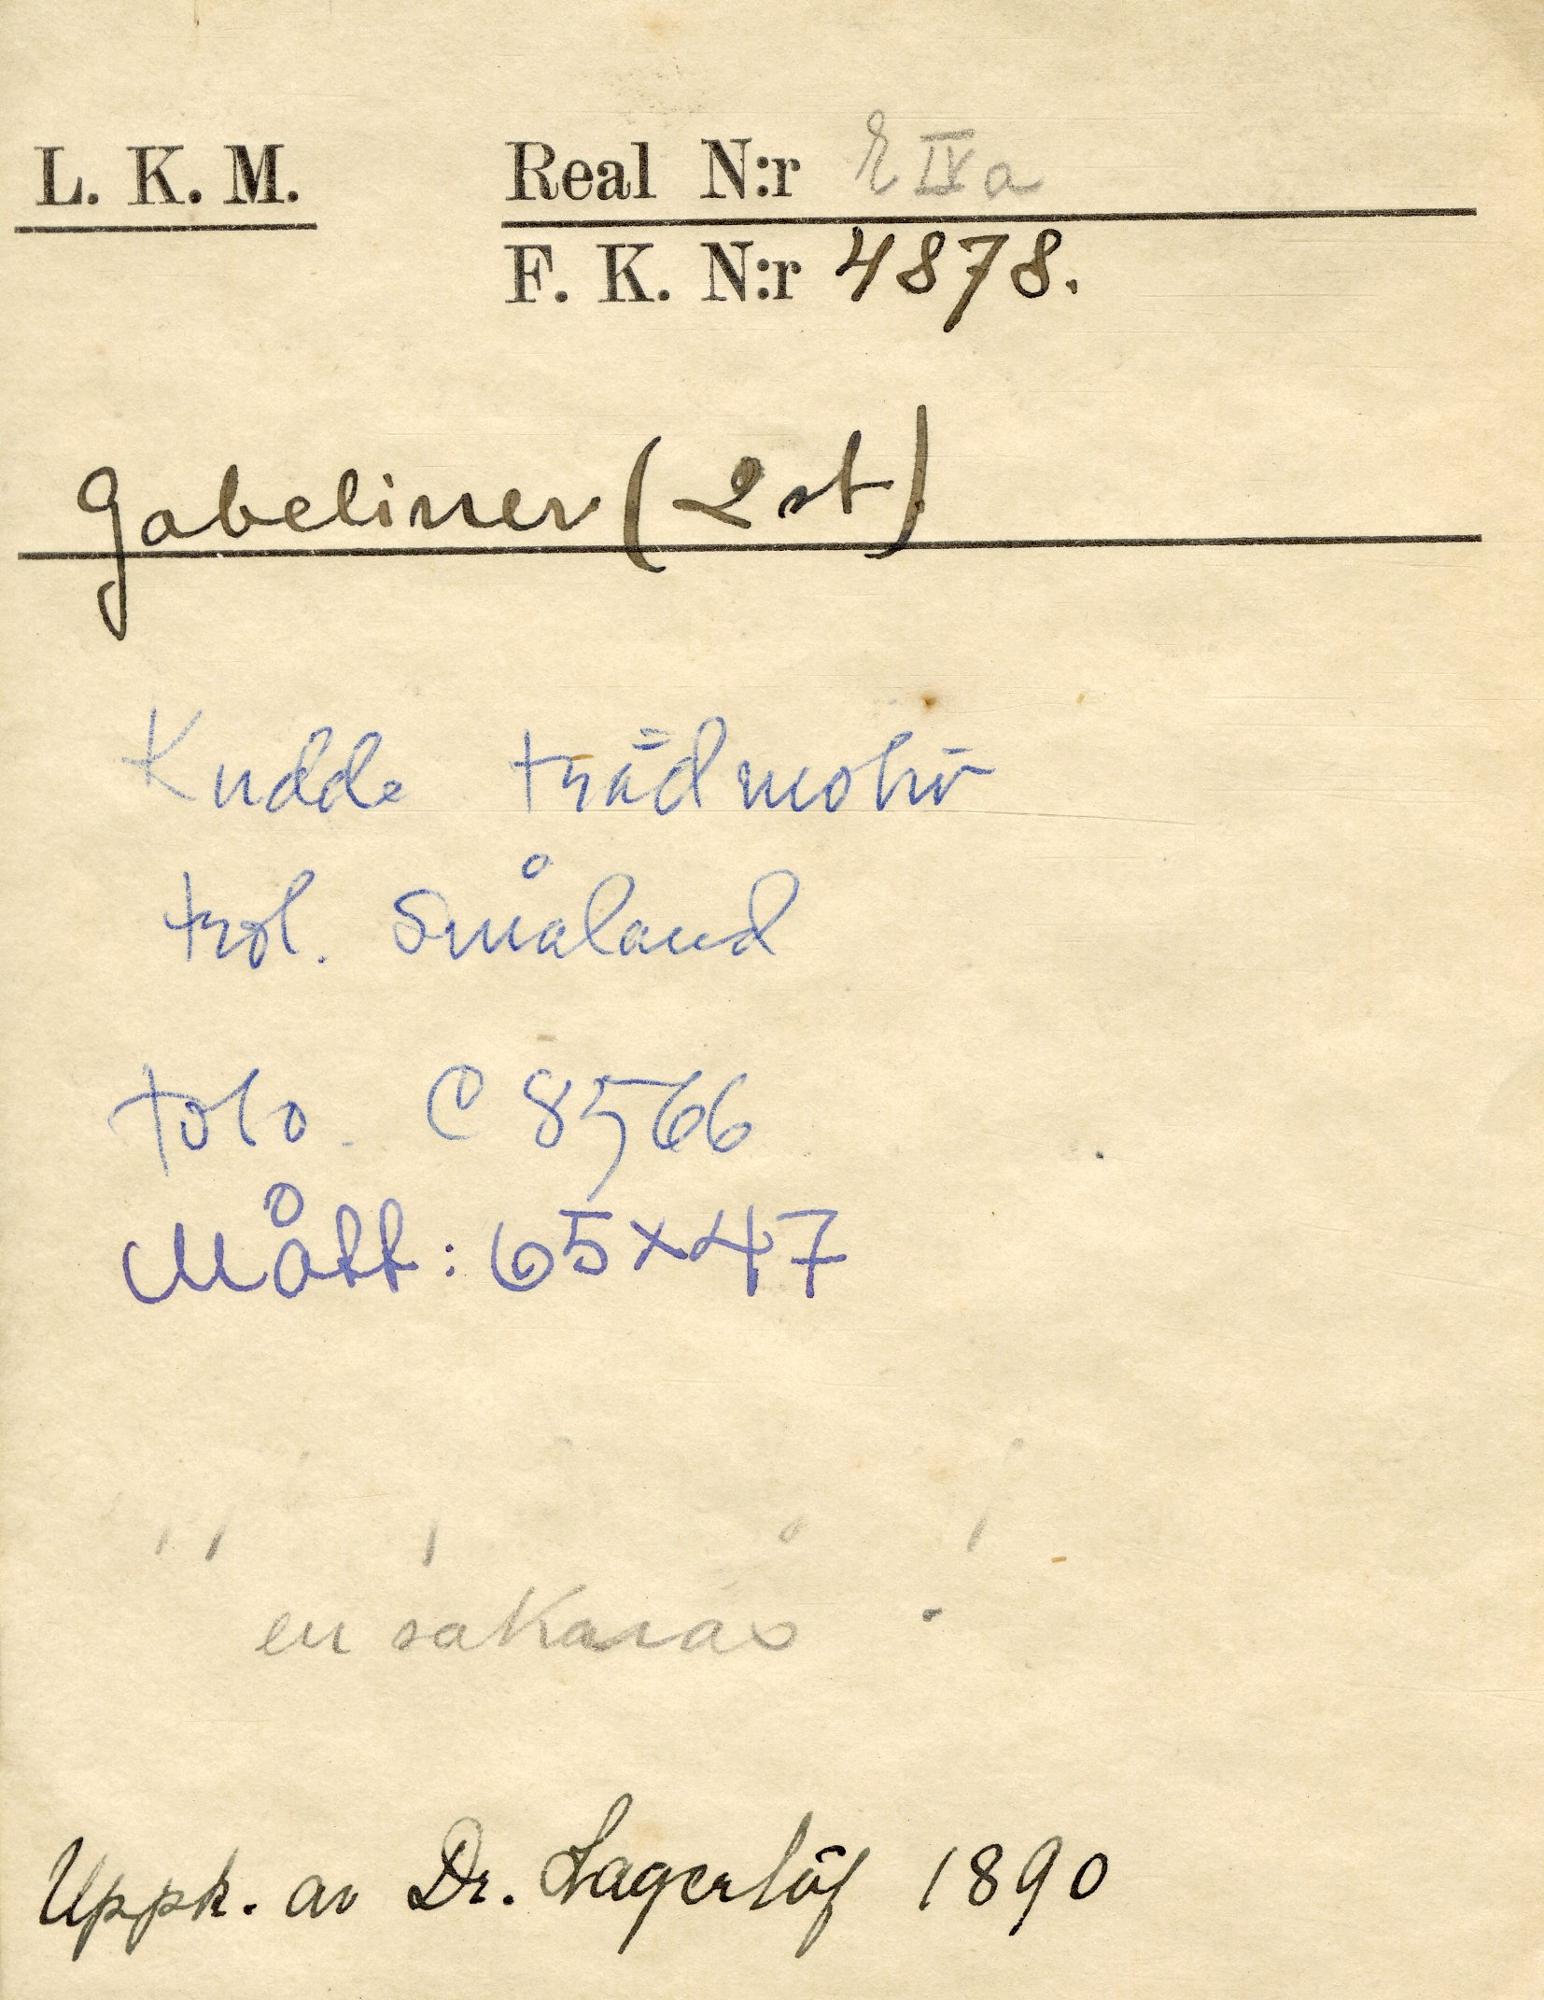 L. K. M. Real N:r E IV a
F. K. N:r 4878.
Gobeliner (2 st)
Kudde trädmotiv
trol. Småland
foto. C 8566
Mått: 65×47
en saknas
Uppk. av Dr. Lagerlöf 1890